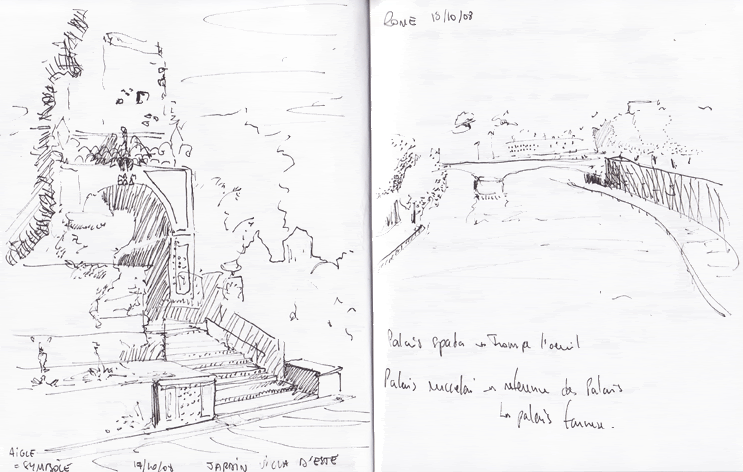 AIGLE
= SYMBOLE
17/10/08 JARDIN VILLA D'ESTE
ROME 18/10/08
Palais Spada → Trompe l'oeuil
Palais ruccelai → référence des Palais
palais farnese.